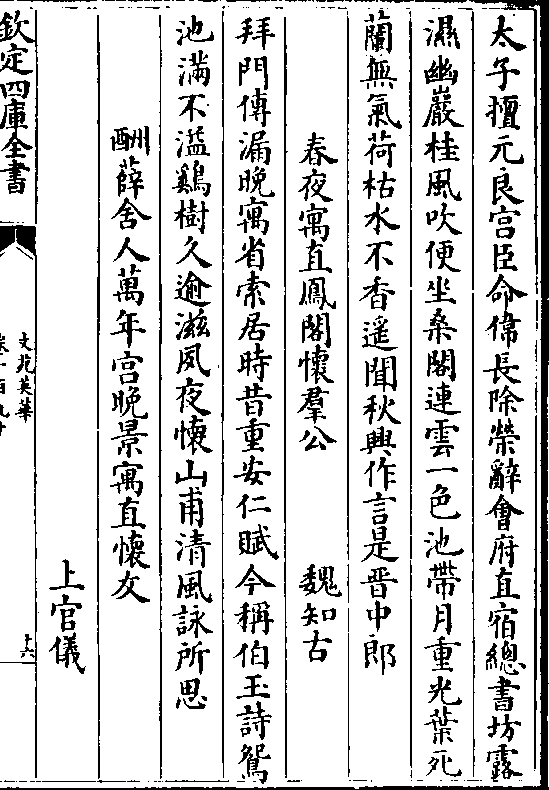 太子擅元良宫臣命偉長除榮辭會府直宿總書坊露
濕幽巖桂風吹便坐桑閣連雲一色池帶月重光葉死
蘭無氣荷枯水不香遥聞秋興作言是晋中郎
春夜寓直鳳閣懷羣公
魏知古
拜門傳漏晚寓省索居時昔重安仁賦今稱伯玉詩鴛
池滿不溢鷄樹久逾滋夙夜懷山甫清風詠所思
酬薛舍人萬年宫晚景寓直懷友
上官儀
欽定四庫全書
文苑英華
卷一百九十
十六